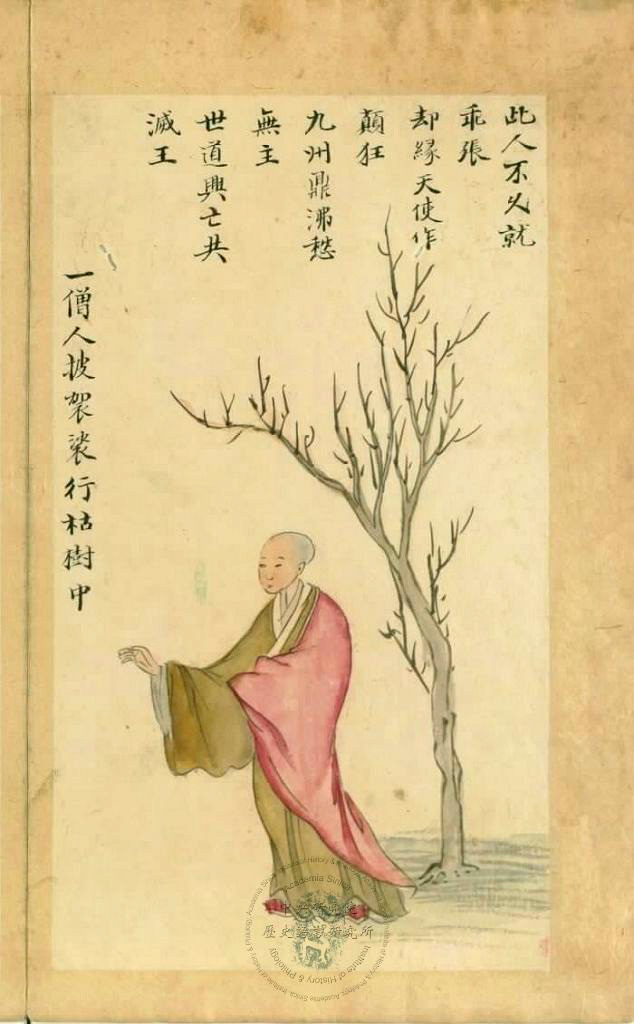 此人不久就
乖張
却緣天使作
顛狂
九州鼎沸愁
無主
世道興亡共
滅王
一僧人披袈裟行枯樹中
Institute of History & Philology, Academia Sinica
Academia Sinica
中央研究院
歷史語言研究所
Institute of History & Philology